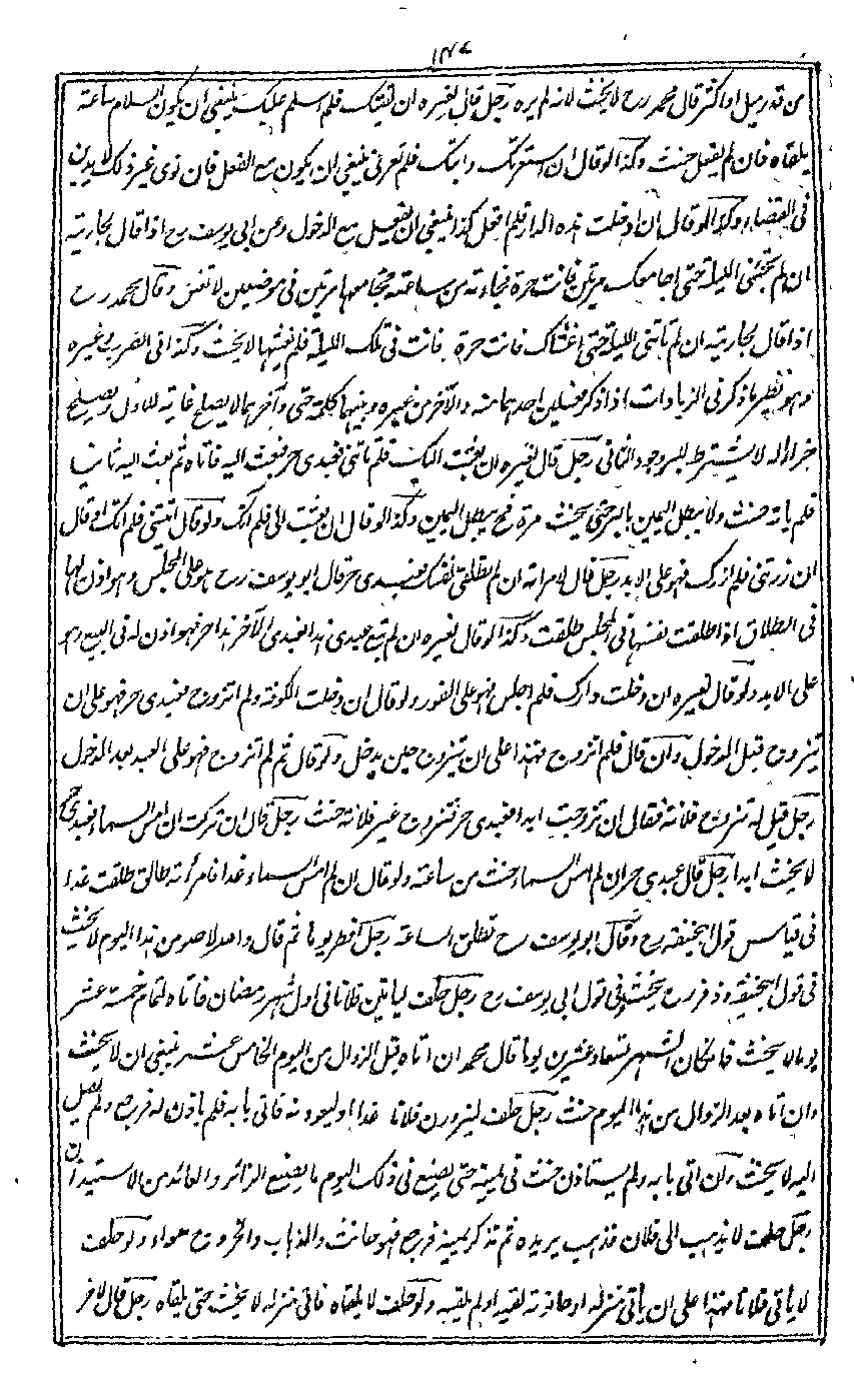 من قدر ميل او اكثر قال محمد رح لا يحنث لانه لم يره رجل قال لغيره ان لقيتك فلم اسلم عليك ينبغي ان يكون السلام ساعة
يلقاه فان لم يفعل حنث وكذا لو قال ان استعرتك دابتك فلم تعرني ينبغي ان يكون مع الفعل فان نوى غير ذلك لا يدين
في القضاء وكذا لو قال ان دخلت هذه الدار فلم افعل كذا ينبغي ان يفعل مع الدخول وعن ابي يوسف رح اذا قال لجاريته
ان لم تجيئني الليلة حتى اجامعك مرتين فانت حرة فجاءته من ساعته فجامعها مرتين في موضعين لا تعتق وقال محمد رح
اذا قال لجاريته ان لم تأتني الليلة حتى اغشاك فانت حرة فاتت في تلك الليلة فلم يغشها لا يحنث وكذا في الضرب وغيره
وهو نظير ما ذكر في الزيادات اذا ذكر فعلين احدهما منه والآخر من غيره وبينهما كلمة حتى وآخرهما لا يصلح غاية للاول ويصلح
جزاء له لا يشترط للبر وجود الثاني رجل قال لغيره ان بعثت اليك فلم تأتني فعبدي حر فبعث اليه فاتاه ثم بعث اليه ثانيا
فلم ياته حنث ولا يبطل اليمين بالبر حتى يحنث مرة فح يبطل اليمين وكذا لو قال ان بعثت الى فلم آتك ولو قال اتيتني فلم آتك او قال
ان زرتني فلم ازرك فهو على الابد رجل قال لامراته ان لم تطلقي نفسك فعبدي حر قال ابو يوسف رح هو على المجلس وهو اذن لها
في الطلاق اذا طلقت نفسها في المجلس طلقت وكذا لو قال لغيره ان لم تبع عبدي هذا فعبدي الآخر هذا حر فهو اذن له في البيع وهو
على الابد ولو قال لغيره ان دخلت دارك فلم اجلس فهو على الفور ولو قال ان دخلت الكوفة ولم اتزوج فعبدي حر فهو على ان
يتزوج قبل الدخول وان قال فلم اتزوج فهذا على ان يتزوج حين يدخل ولو قال ثم لم اتزوج فهو على العبد بعد الدخول
رجل قيل له تتزوج فلانة فقال ان تزوجت ابدا فعبدي حر فتزوج غير فلانة حنث رجل قال ان تركت ان امس السماء فعبدي حر
لا يحنث ابدا رجل قال عبدي حر ان لم امس السماء حنث من ساعته ولو قال ان لم امس السماء غدا فامرأته طالق طلقت غدا
في قياس قول ابيحنيفة رح وقال ابو يوسف رح تطلق الساعة رجل افطر يوما ثم قال والله لاصومن هذا اليوم لا يحنث
في قول ابيحنيفة وزفر رح ويحنث في قول ابي يوسف رح رجل حلف لياتين فلانا في اول شهر رمضان فاتاه لتمام خمسة عشر
يوما لا يحنث فان كان الشهر تسعة وعشرين يوما قال محمد ان اتاه قبل الزوال من اليوم الخامس عشر ينبغي ان لا يحنث
وان اتاه بعد الزوال من هذا اليوم حنث رجل حلف ليزورن فلانا غدا او ليعودنه فاتى بابه فلم ياذن له فرجع ولم يصل
اليه لا يحنث وان اتى بابه ولم يستاذن حنث في يمينه حتى يصنع في ذلك اليوم ما يصنع الزائر والعائد من الاستيذان
رجل حلف لا يذهب الى فلان فذهب يريده ثم تذكر يمينه فرجع فهو حانث والذهاب والخروج سواء ولو حلف
لا يأتي فلانا فهذا على ان يأتي منزله او حانوته لقيه او لم يلقه ولو حلف لا يلقاه فاتى منزله لا يحنث حتى يلقاه رجل قال لآخر